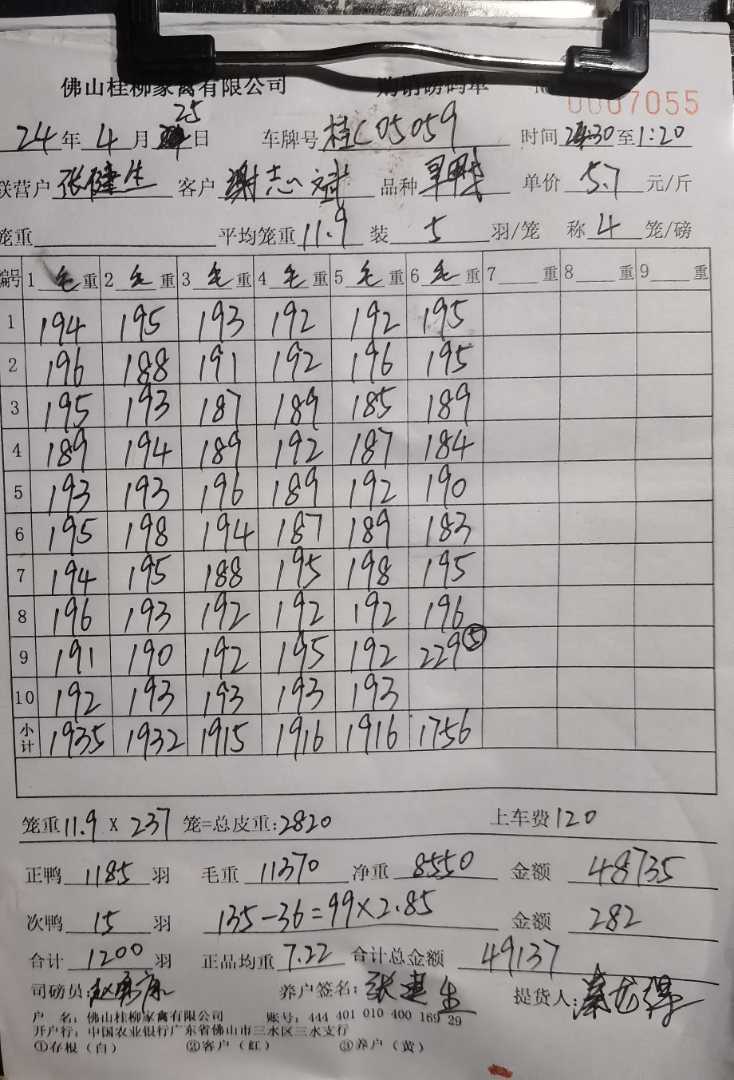 佛山桂柳家禽有限公司 购销磅码单 0007055
24年4月25日 车牌号桂C05059 时间 至1:20
联营户张健生 客户谢志斌 品种 单价5.7元/斤
笼重 平均笼重11.9 装5羽/笼 称4笼/磅
编号 1毛重 2毛重 3毛重 4毛重 5毛重 6毛重 7重 8重 9重
1 194 195 193 192 192 195
2 196 188 191 192 196 195
3 195 193 187 189 185 189
4 189 194 189 192 187 184
5 193 193 196 189 192 190
6 195 198 194 187 189 183
7 194 195 188 195 198 195
8 196 193 192 192 192 196
9 191 190 192 195 192 229⑤
10 192 193 193 193 193
小计 1935 1932 1915 1916 1916 1756
笼重11.9 X 237 笼=总皮重:2820 上车费120
正鸭1185羽 毛重11370 净重8550 金额48735
次鸭15羽 135-36=99×2.85 金额282
合计1200羽 正品均重7.22 合计总金额49137
司磅员: 养户签名:张建生 提货人:
户 名:佛山桂柳家禽有限公司 账号:444 401 010 400 169 29
开户行:中国农业银行广东省佛山市三水区三水支行
①存根(白) ②客户(红) ③养户(黄)